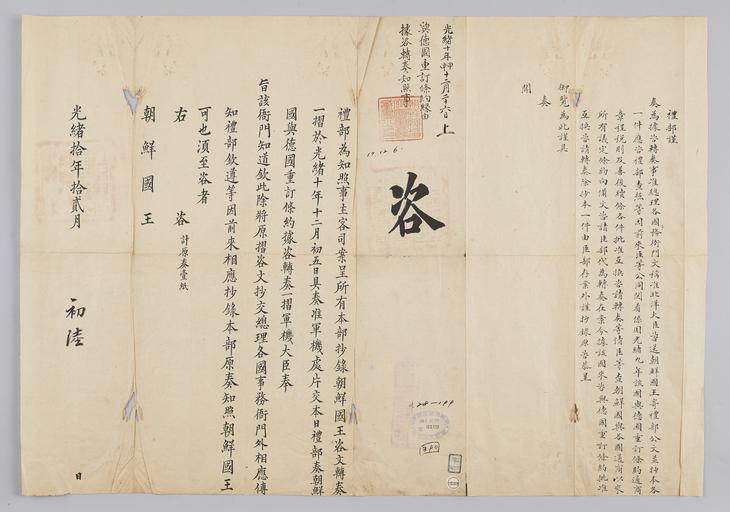 禮部謹
奏為據咨轉奏事准總理各國務衙門文稱准北洋大臣咨送朝鮮國王寄禮部公文並抄本各
一件應咨禮部查照等因前來臣等公同閱看係因光緒九年該國與德國重訂條約通商
章程稅則及善後續條各件批准互換咨請轉奏等情臣等查朝鮮國與各國通商以來
所有議定條約向備文咨請臣部代為轉奏在案今據該國來咨與德國重訂條約批准
互換咨請轉奏除抄本一件由臣部存案外謹抄錄原咨恭呈
御覽為此謹具
奏
聞
光緒十年甲申十二月二十六日 上
與德國重訂條約緣由
據咨轉奏知照事
咨
禮部為知照事主客司案呈所有本部抄錄朝鮮國王咨文轉奏
一摺於光緒十年十二月初五日具奏准軍機處片交本日禮部奏朝鮮
國與德國重訂條約據咨轉奏一摺軍機大臣奉
旨該衙門知道欽此除將原摺咨文抄交總理各國事務衙門外相應傳
知禮部欽遵等因前來相應抄錄本部原奏知照朝鮮國王
可也須至咨者
右 咨 計原奏壹紙
朝鮮國王
光緒拾年拾貳月 初陸 日